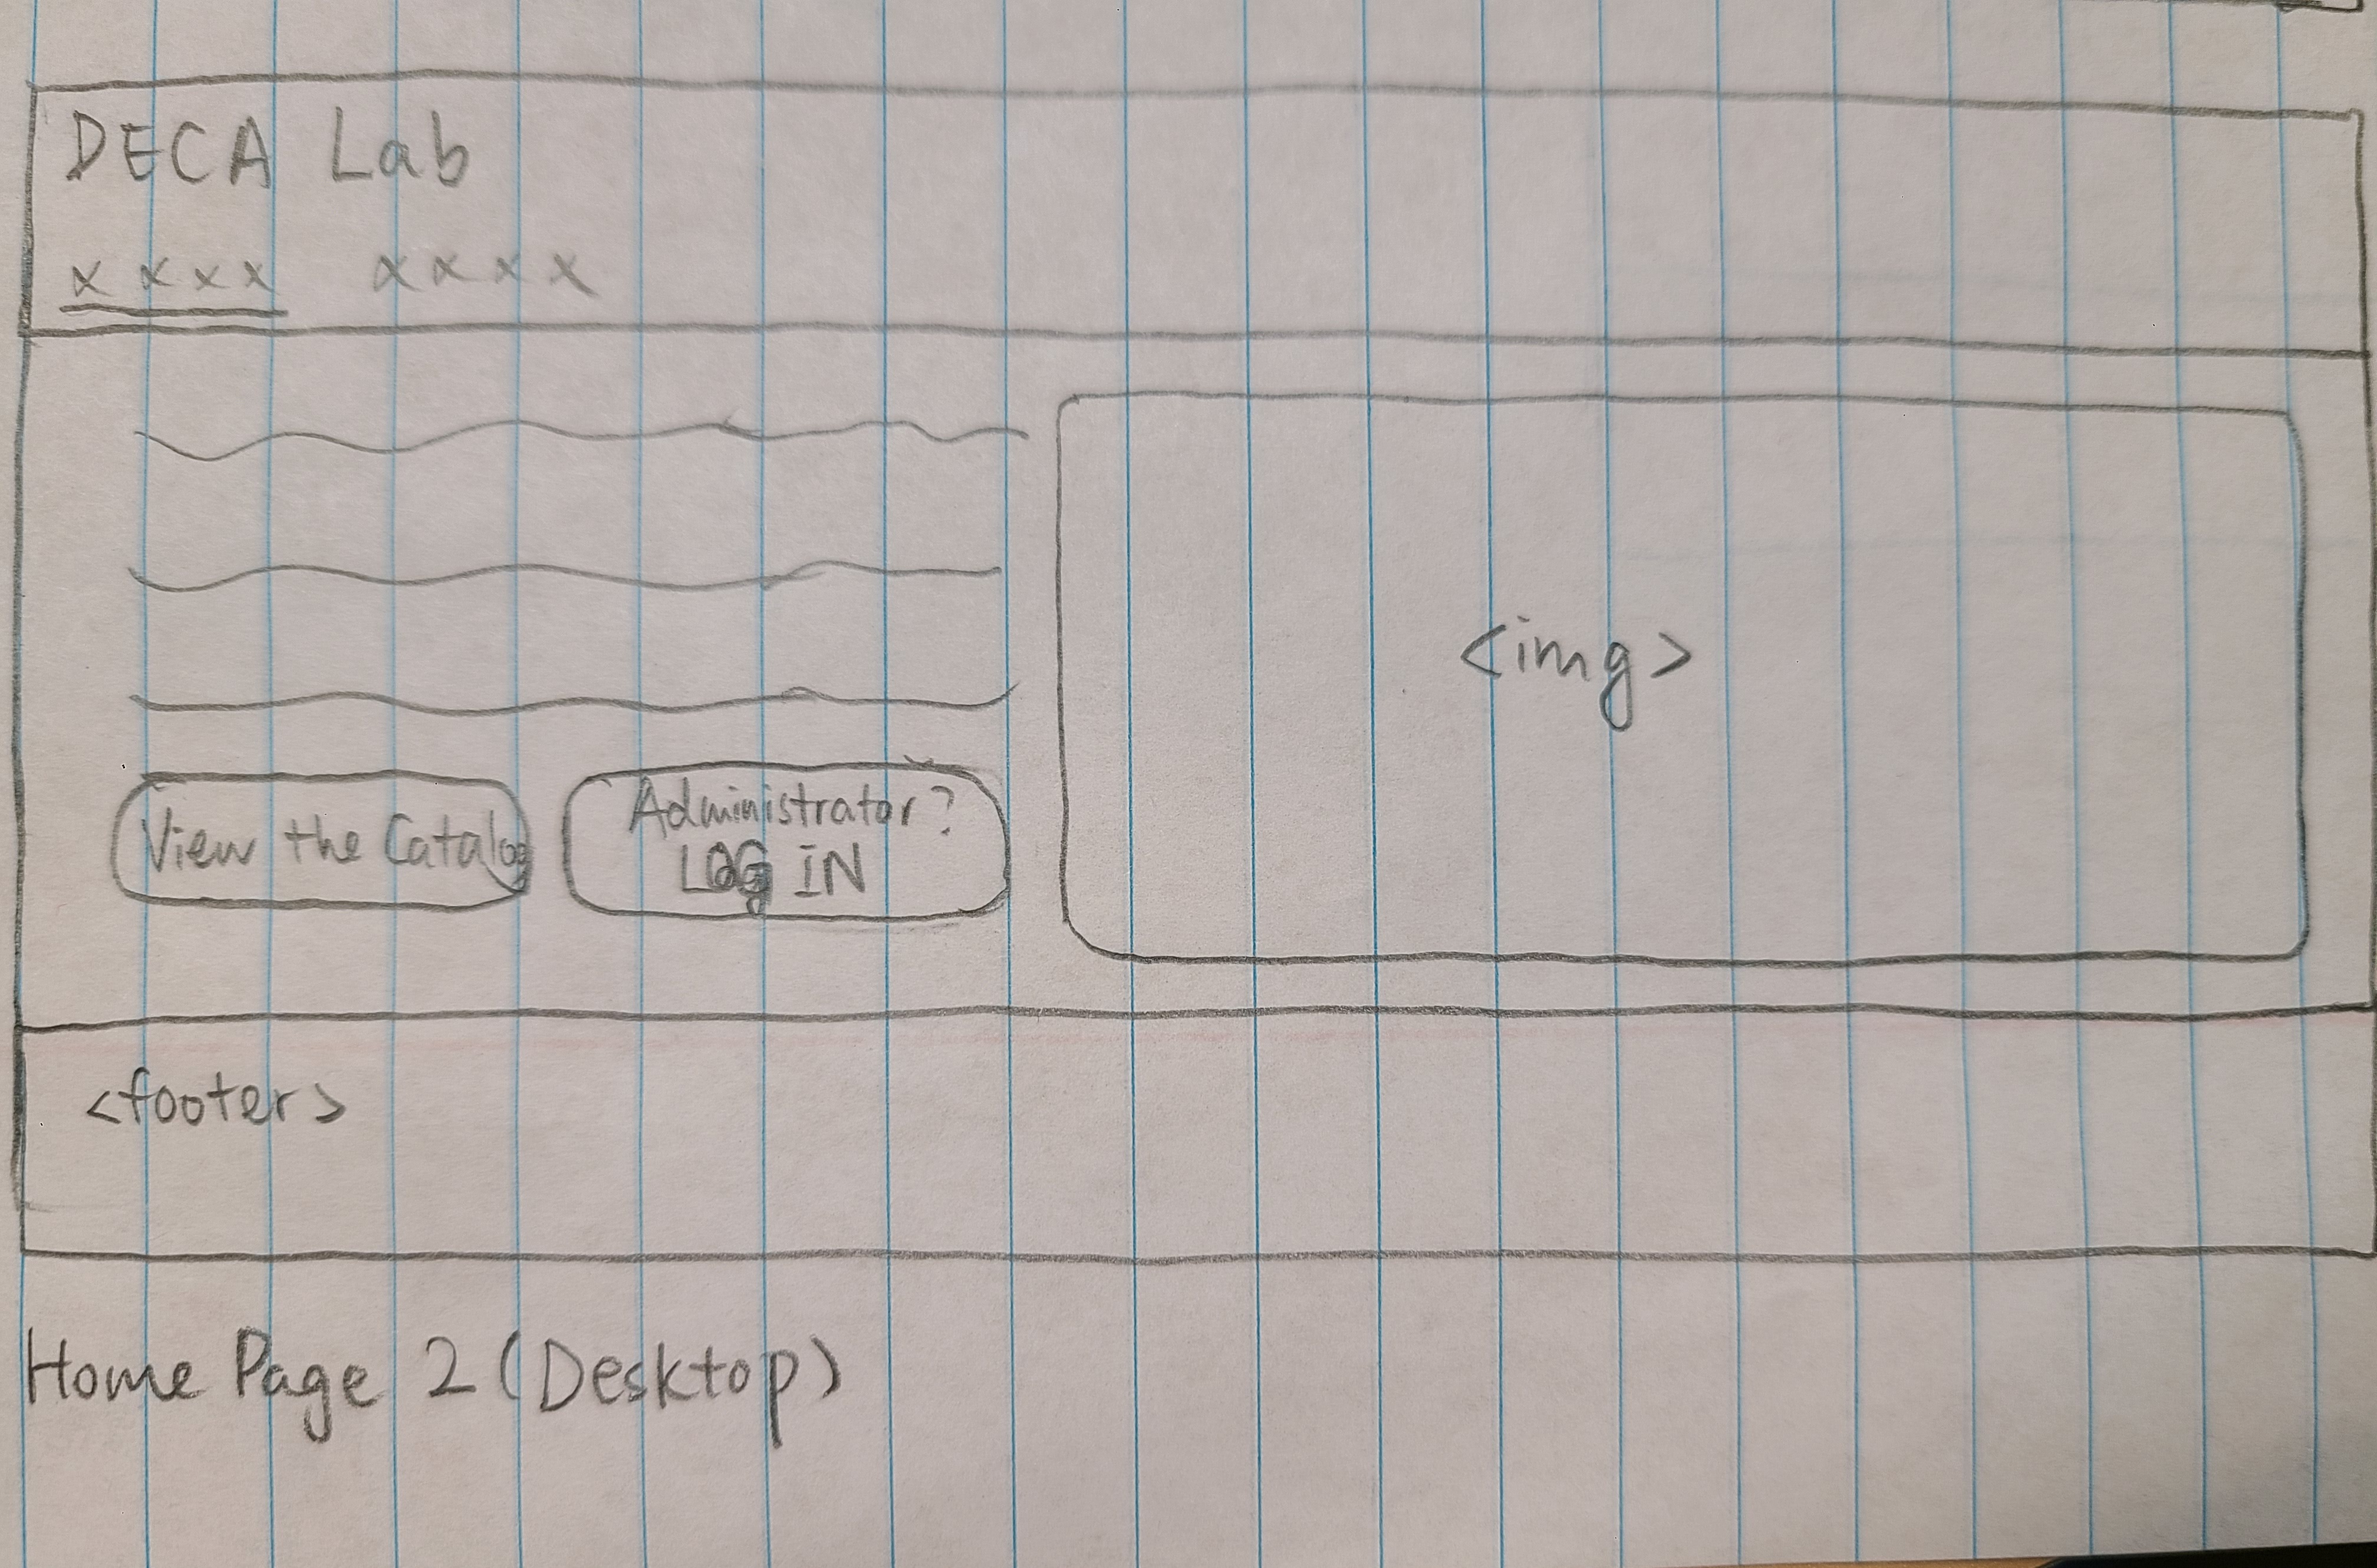 DECA Lab
x x x x x x x x
<img>
View the Catalog
Administrator?
LOG IN
<footer>
Home Page 2 (Desktop)